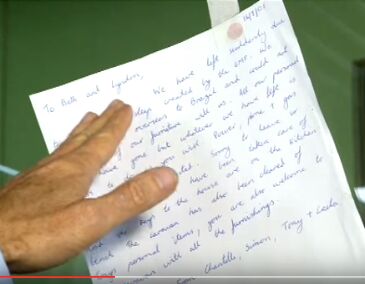 16/8/01
To Beth and Lyndon,
We have left suddenly due
days created by the EMF. We
overseas to Brazil and would not
of our furniture with us. All our personal
have gone but whatever we have left is
to do you wish. Power, phone + gas
Sorry to leave in
have been taken care of
and the keys to the house are on the kitchen
bench the caravan has also been cleared of
personal items, you are also welcome to
with all the furnishings.
Chantelle, Simon, Tony + Leeta